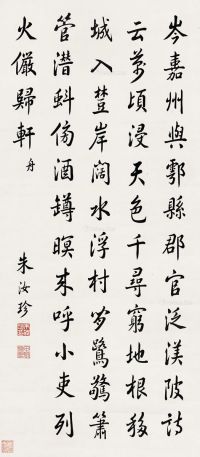 岑嘉州與鄠縣郡官泛渼陂詩
云萬頃浸天色千尋窮地根移
城入岸闊水浮村閒鷺驚簫
管潛虯傍酒罇暝來呼小吏列
火儼歸軒 舟
朱汝珍